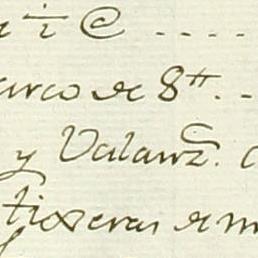 i @ ....
arco de 8tt. ..
y Valanz.
tixeras de m